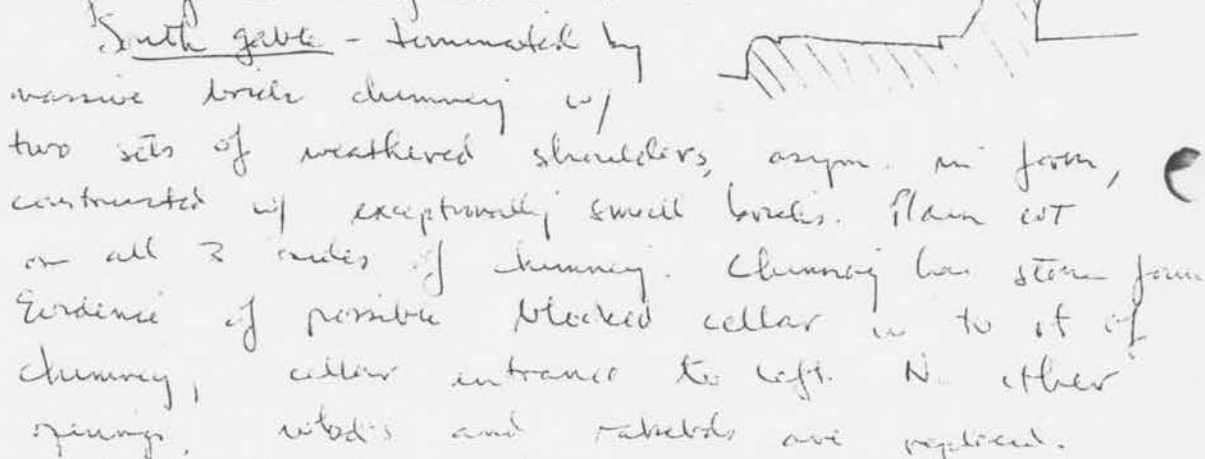 South gable - terminated by
massive brick chimney w/
two sets of weathered shoulders, asym. in form,
constructed w/ exceptionally small bricks. Plain WT
on all 3 sides of chimney. Chimney has stone foun
Evidence of possible blocked cellar w to rt of
chimney, cellar entrance to left. No other
openings. and are replaced.